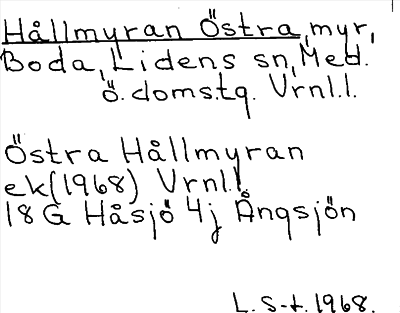 Hållmyran Östra, myr,
Boda, Lidens sn, Med.
ö. domstg. Vrnl.l.
Östra Hållmyran
ek(1968) Vrnl.l.
18 G Håsjö 4j Ångsjön
L. S-t. 1968.